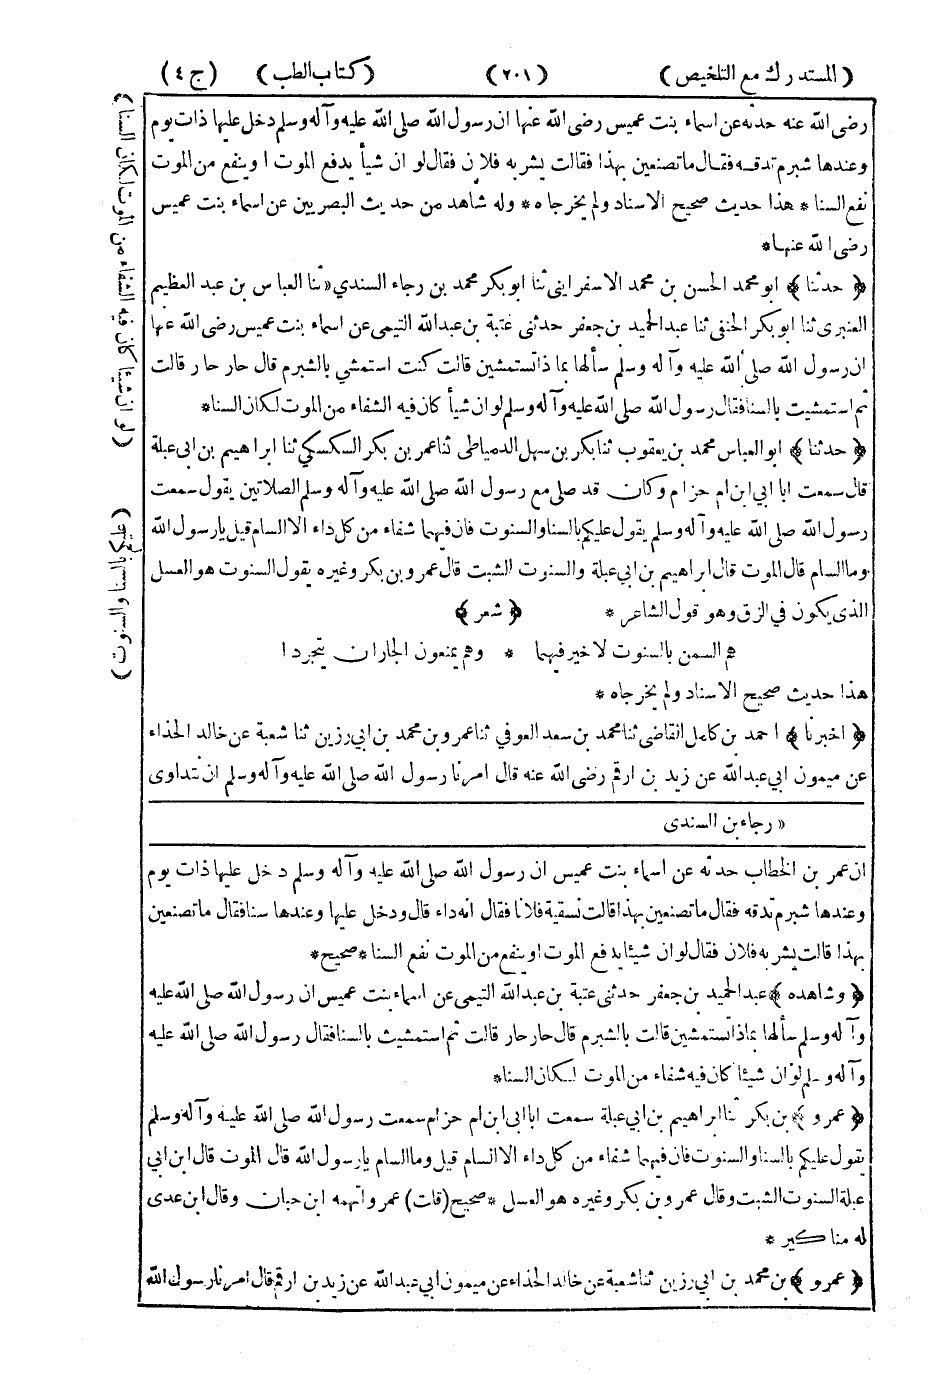 (المستدرك مع التلخيص) (٢٠١) (كتاب الطب) (ج ٤)
رضى الله عنه حدثه عن اسماء بنت عميس رضى الله عنها ان رسول الله صلى الله عليه وآله وسلم دخل عليها ذات يوم
وعندها شبرم تدقه فقال ما تصنعين بهذا فقالت يشربه فلان فقال لو ان شيأ يدفع الموت او ينفع من الموت
نفع السنا * هذا حديث صحيح الاسناد ولم يخرجاه * وله شاهد من حديث البصريين عن اسماء بنت عميس
رضى الله عنها *
﴿ حدثنا ﴾ ابو محمد الحسن بن محمد الاسفراينى ثنا ابو بكر محمد بن رجاء السندي « ثنا العباس بن عبد العظيم
العنبرى ثنا ابو بكر الحنفى ثنا عبد الحميد بن جعفر حدثنى عتبة بن عبد الله التيمى عن اسماء بنت عميس رضى الله عنها
ان رسول الله صلى الله عليه وآله وسلم سألها بما ذا تستمشين قالت كنت استمشي بالشبرم قال حار حار قالت
ثم استمشيت بالسنا فقال رسول الله صلى الله عليه وآله وسلم لو ان شيأ كان فيه الشفاء من الموت لكان السنا *
﴿ حدثنا ﴾ ابو العباس محمد بن يعقوب ثنا بكر بن سهل الدمياطى ثنا عمر بن بكر السكسكي ثنا ابراهيم بن ابى عبلة
قال سمعت ابا ابي ابن ام حزام وكان قد صلى مع رسول الله صلى الله عليه وآله وسلم الصلاتين يقول سمعت
رسول الله صلى الله عليه وآله وسلم يقول عليكم بالسنا والسنوت فان فيهما شفاء من كل داء الا السام قيل يا رسول الله
وما السام قال الموت قال ابراهيم بن ابي عبلة والسنوت الشبت قال عمرو بن بكر وغيره يقول السنوت هو العسل
الذى يكون في الزق وهو قول الشاعر * ﴿ شعر ﴾
هم السمن بالسنوت لا خير فيهما * وهم يمنعون الجاران يتجردا
هذا حديث صحيح الاسناد ولم يخرجاه *
﴿ اخبرنا ﴾ احمد بن كامل القاضى ثنا محمد بن سعد العوفي ثنا عمرو بن محمد بن ابي رزين ثنا شعبة عن خالد الحذاء
عن ميمون ابي عبد الله عن زيد بن ارقم رضى الله عنه قال امرنا رسول الله صلى الله عليه وآله وسلم ان نتداوى
« رجاء بن السندى
ان عمر بن الخطاب حدثه عن اسماء بنت عميس ان رسول الله صلى الله عليه وآله وسلم دخل عليها ذات يوم
وعندها شبرم تدقه فقال ما تصنعين بهذا قالت نسقية فلانا فقال انه داء قال ودخل عليها وعندها سنا فقال ما تصنعين
بهذا قالت يشربه فلان فقال لو ان شيئا يدفع الموت او ينفع من الموت نفع السنا * صحيح *
﴿ وشاهده ﴾ عبد الحميد بن جعفر حدثنى عتبة بن عبد الله التيمى عن اسماء بنت عميس ان رسول الله صلى الله عليه
وآله وسلم سألها بماذا تستمشين قالت بالشبرم قال حار حار قالت ثم استمشيت بالسنا فقال رسول الله صلى الله عليه
وآله وسلم لو ان شيئا كان فيه شفاء من الموت لكان السنا *
﴿ عمرو ﴾ بن بكر ثنا ابراهيم بن ابي عبلة سمعت ابا ابى ابن ام حزام سمعت رسول الله صلى الله عليه وآله وسلم
يقول عليكم بالسنا والسنوت فان فيهما شفاء من كل داء الا السام قيل وما السام يا رسول الله قال الموت قال ابن ابي
عبلة السنوت الشبت وقال عمرو بن بكر وغيره هو العسل * صحيح (قلت) عمرو اتهمه ابن حبان وقال ابن عدى
له مناكير *
﴿ عمرو ﴾ بن محمد بن ابي رزين ثنا شعبة عن خالد الحذاء عن ميمون ابي عبد الله عن زيد بن ارقم قال امرنا رسول الله
(لو ان شيئا كان فيه الشفاء من الموت لكان السنا)
(السنا والسنوت)